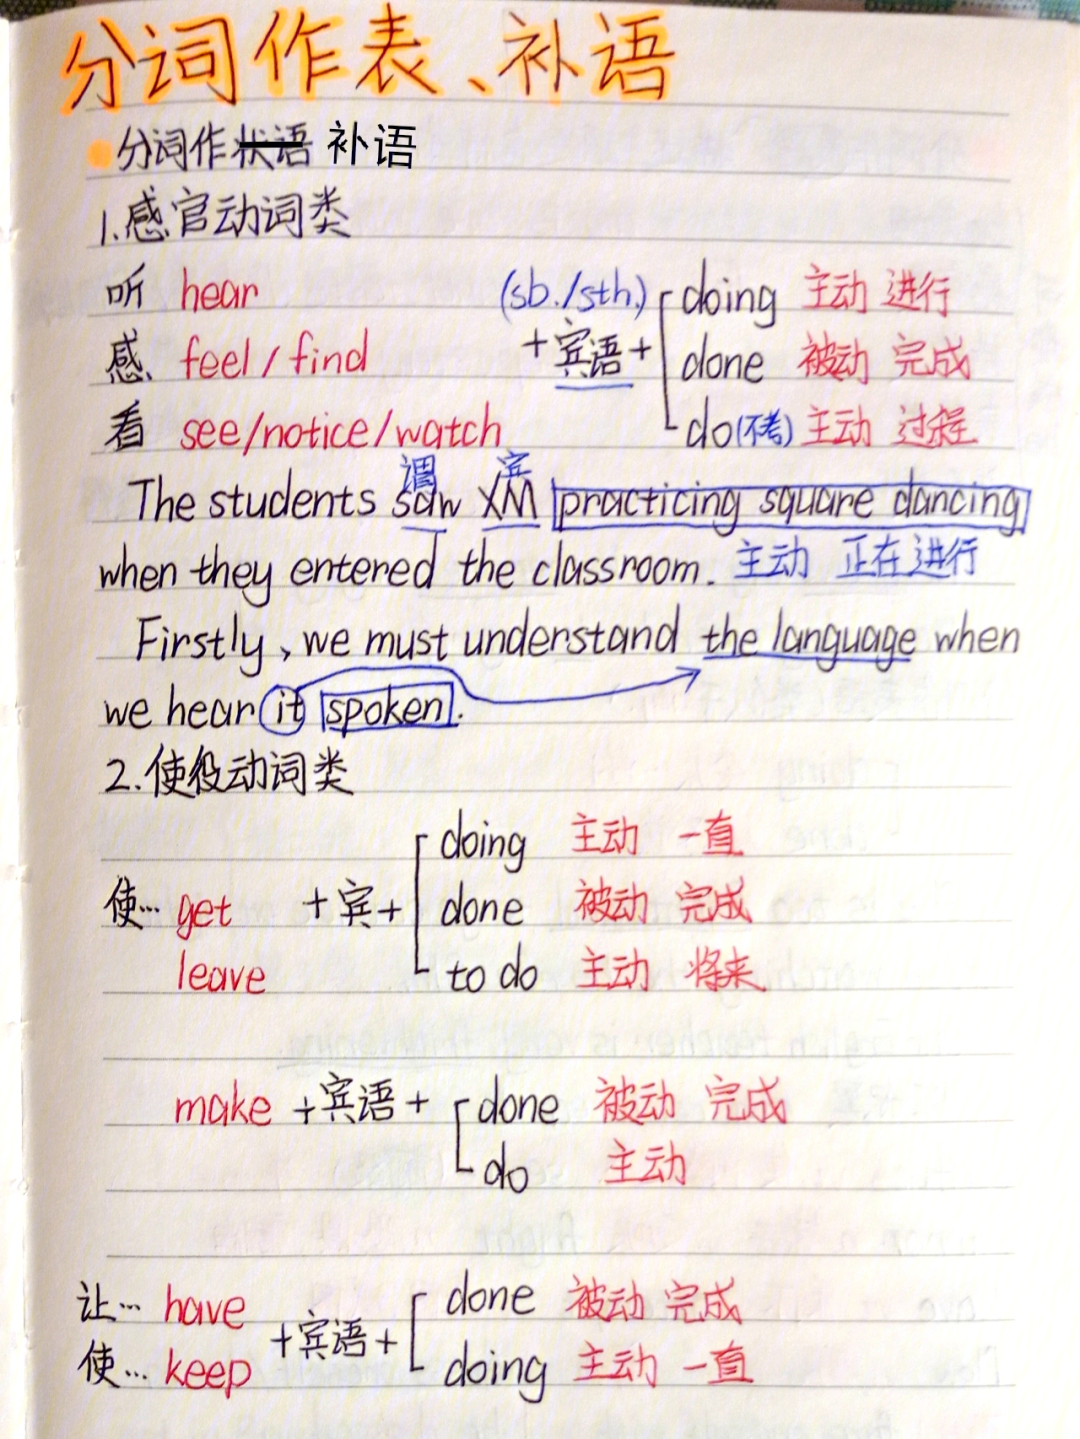 分词作表、补语
分词作状语 补语
1.感官动词类
听 hear (sb./sth.) doing 主动 进行
感 feel / find +宾语+ done 被动 完成
看 see/notice/watch do(不考) 主动 过程
谓 宾
The students saw XM practicing square dancing
when they entered the classroom. 主动 正在进行
Firstly, we must understand the language when
we hear it spoken.
2.使役动词类
doing 主动 一直
使… get +宾+ done 被动 完成
leave to do 主动 将来
make +宾语+ done 被动 完成
do 主动
让… have done 被动 完成
+宾语+
使… keep doing 主动 一直